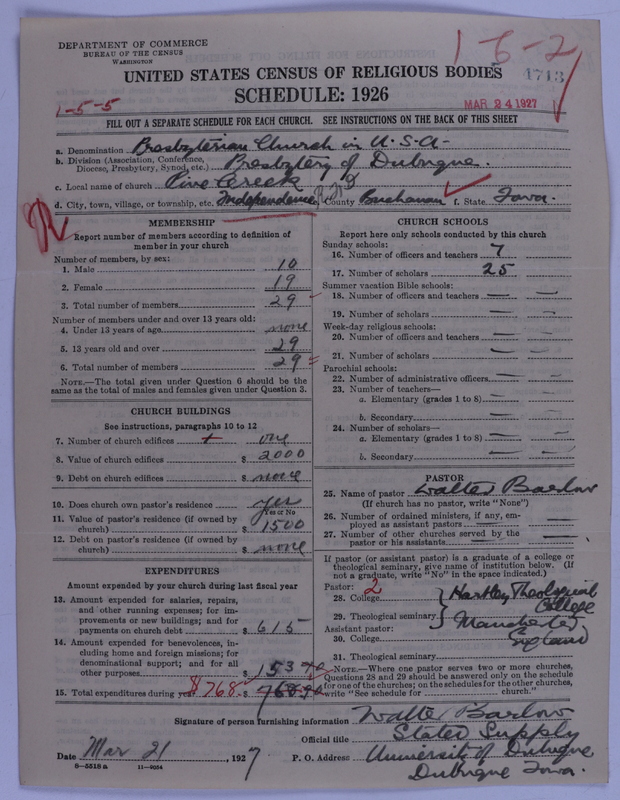 DEPARTMENT OF COMMERCE
BUREAU OF THE CENSUS
WASHINGTON
1-6-2
4713
UNITED STATES CENSUS OF RELIGIOUS BODIES
SCHEDULE: 1926
1-5-5
MAR 24 1927
FILL OUT A SEPARATE SCHEDULE FOR EACH CHURCH. SEE INSTRUCTIONS ON THE BACK OF THIS SHEET
a. Denomination Presbyterian Church in U.S.A-
b. Division (Association, Conference, Diocese, Presbytery, Synod, etc.) Presbytery of Dubuque.
c. Local name of church Pine Creek
d. City, town, village, or township, etc. Independence County Buchanan f. State Iowa.
MEMBERSHIP
Report number of members according to definition of
member in your church
Number of members, by sex:
1. Male 10
2. Female 19
3. Total number of members 29
Number of members under and over 13 years old:
4. Under 13 years of age none
5. 13 years old and over 29
6. Total number of members 29
NOTE.—The total given under Question 6 should be the
same as the total of males and females given under Question 3.
CHURCH BUILDINGS
See instructions, paragraphs 10 to 12
7. Number of church edifices one
8. Value of church edifices $ 2000
9. Debt on church edifices $ none
10. Does church own pastor's residence yes
Yes or No
11. Value of pastor's residence (if owned by
church) $ 1500
12. Debt on pastor's residence (if owned by
church) $ none
EXPENDITURES
Amount expended by your church during last fiscal year
13. Amount expended for salaries, repairs,
and other running expenses; for im-
provements or new buildings; and for
payments on church debt $ 615
14. Amount expended for benevolences, in-
cluding home and foreign missions; for
denominational support; and for all
other purposes $ 153
15. Total expenditures during year $768 $
CHURCH SCHOOLS
Report here only schools conducted by this church
Sunday schools:
16. Number of officers and teachers 7
17. Number of scholars 25
Summer vacation Bible schools:
18. Number of officers and teachers —
19. Number of scholars —
Week-day religious schools:
20. Number of officers and teachers —
21. Number of scholars —
Parochial schools:
22. Number of administrative officers —
23. Number of teachers—
a. Elementary (grades 1 to 8) —
b. Secondary —
24. Number of scholars—
a. Elementary (grades 1 to 8) —
b. Secondary —
PASTOR
25. Name of pastor Walter Barlow
(If church has no pastor, write "None")
26. Number of ordained ministers, if any, em-
ployed as assistant pastors —
27. Number of other churches served by the
pastor or his assistants —
If pastor (or assistant pastor) is a graduate of a college or
theological seminary, give name of institution below. (If
not a graduate, write "No" in the space indicated.)
Pastor: 2
28. College Hartley Theological
College
29. Theological seminary Manchester
Assistant pastor:
30. College England
31. Theological seminary
NOTE.—Where one pastor serves two or more churches,
Questions 28 and 29 should be answered only on the schedule
for one of the churches; on the schedules for the other churches,
write "See schedule for church."
Signature of person furnishing information Walter Barlow
Official title Stated Supply
Date Mar 21, 1927 P. O. Address University of Dubuque
Dubuque Iowa.
8-5518a 11-9054